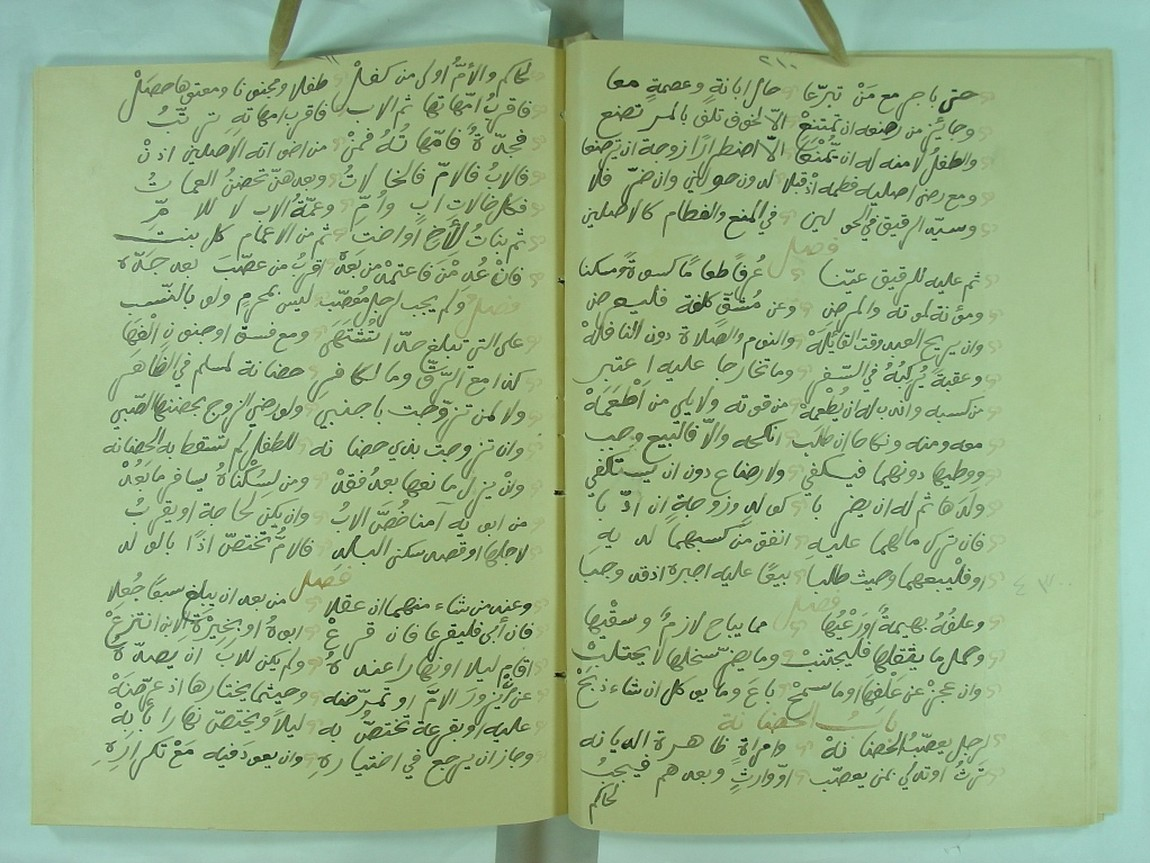 ٢١٠
حتى باجر مع من تبرعا حال ابانة وعصمة معا
وجائز من رضعه ان تمتنع الا لخوف تلف بالمرتضع
والطفل لامنه له ان تمنعا الا اضطرارا زوجة ان يرضعا
ومع رضى اصليه فطمه اقبلا لدون حولين وان ضر فلا
وسيد الرقيق في الحولين في المنع والفطام كالاصلين
فصل
ثم عليه للرقيق عينا عرفا طعاما كسوة ومسكنا
ومؤنة لموته والمرض وعن مشق كلفة فليعرض
وان يريح العبد وقت القائلة والنوم والصلاة دون النافلة
وعقبة يركبه في السفر وما تخارجا عليه اعتبر
من كسبه واندب له ان يطعمه من قوته ولا يلي من اطعمه
معه ومنه ونكاحا ان طلب انكحه والا فالبيع وجب
ووطيها دونهما فيكفي ولا رضاع دون ان يستكفي
ولدها ثم له ان يضربا كولد وزوجة ان ادبا
فان ترك مالهما عليه انفق من كسبهما لديه
او فليبعهما وحيث طلبا بيعا عليه اجبره اذ قد وجبا
فصل
وعلفه بهيمة او رعيها مما يباح لازم وسقيها
وحمل ما يثقلها فليجتنب وما يضر سخلها لا يحتلب
وان عجز عن علفها او ما سمح باع وما يوكل ان شاء ذبح
باب الحضانة
لرجل يعصب الحضانة وامراة ظاهرة الديانة
ترث او تدلي بمن يعصب او وارث وبعدهم فيجب
لحاكم
لحاكم والام اولى من كفل طفلا ومجنونا ومعتوها حصل
فاقرب امهاتها ثم الاب فاقرب امهاته ترتب
فجدة فامهاته فمن من اخواته الاصلين اذن
فالاب فالام فالخالات وبعدهن تحضن العمات
فكل خالات اب وام وعمة الاب لا للام
ثم بنات لأخ او اخت ثم من الاعمام كل بنت
فان عدمن فاعتمد من بعده اقرب من عصب بعد جده
فصل ولم يجب لرجل معصب ليس بمحرم ولو بالنسب
على التي تبلغ حدا تشتهى ومع فسق او جنون الفها
كذا مع الرق وما لكافر حضانة لمسلم في الظاهر
ولا لمن تزوجت باجنبي ولو رضي الزوج بحضنها الصبي
وان تزوجت بذي حضانه للطفل لم تسقط به الحضانه
وان يزل مانعها بعد فقد ومن لسكناه يسافر ما بعد
من ابويه آمنا خص الاب وان يكن لحاجة او يقرب
لاجلها او قصد سكنى البلد فالام تختص اذا بالولد
فصل
وعند من شاء منهما ان عقلا من بعد ان يبلغ سبعا جعلا
فان أبى فليقرعا فان قرع ابوه او بخيرة الابن انتزع
اقام ليلا او نهارا عنده ولم يكن للاب ان يصده
عن ان يزور الام او تمرضه وحيثما يختارها اذ عرضه
عليه او بقرعة تختص به ليلا ويختص نهارا بأبه
وجاز ان يرجع في اختياره وان يعود فيه مع تكراره